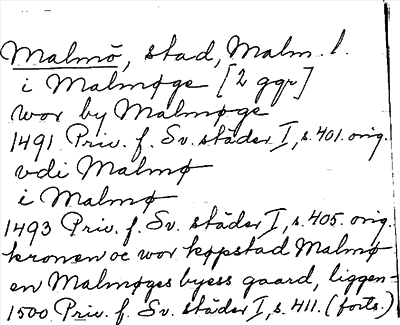 Malmö, stad, Malm. l.
i Malmøge [2 ggr]
wor by Malmøge
1491 Priv. f. Sv. städer I, s. 401. orig.
vdi Malmø
i Malmø
1493 Priv. f. Sv. städer I, s. 405. orig.
kronen oc wor køpstad Malmø
en Malmøges byess gaard, liggen-
1500 Priv. f. Sv. städer I, s. 411. (forts.)